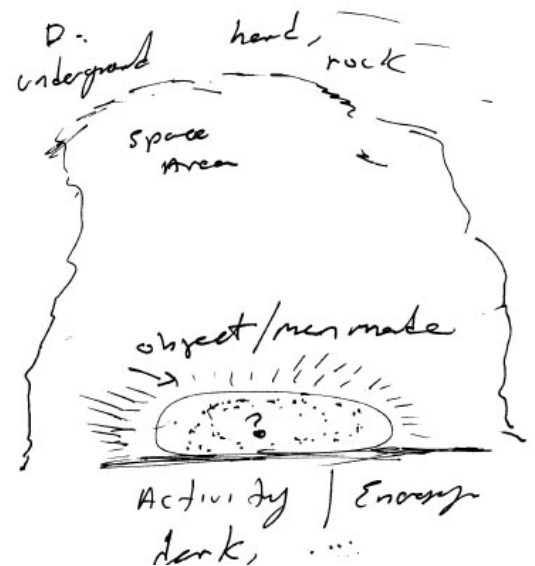 D.. hard,
underground rock
space
Area
object/manmade
?
Activity | Energy
dark,